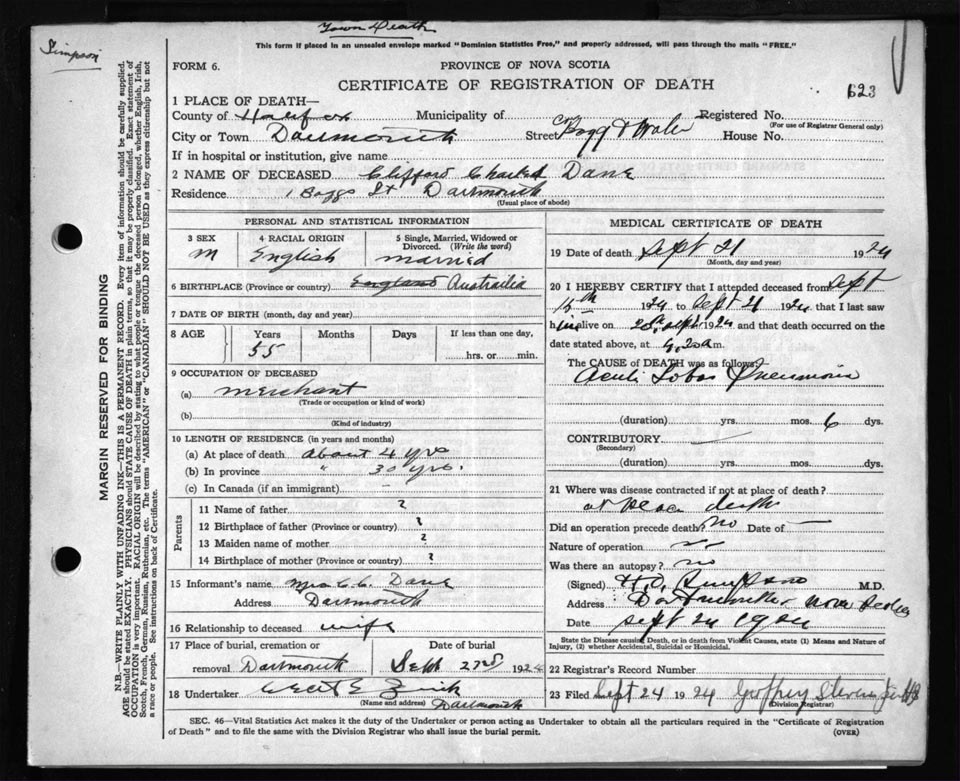 Town Death
Simpson
This form if placed in an unsealed envelope marked "Dominion Statistics Free," and properly addressed, will pass through the mails "FREE."
FORM 6.
PROVINCE OF NOVA SCOTIA
CERTIFICATE OF REGISTRATION OF DEATH
623
1 PLACE OF DEATH—
County of Halifax Municipality of Registered No.
(For use of Registrar General only)
City or Town Dartmouth Street Cor Bogg & Water House No.
If in hospital or institution, give name
2 NAME OF DECEASED Clifford Charles Dane
Residence 1 Boggs St Dartmouth
(Usual place of abode)
PERSONAL AND STATISTICAL INFORMATION
3 SEX 4 RACIAL ORIGIN 5 Single, Married, Widowed or Divorced. (Write the word)
M English married
6 BIRTHPLACE (Province or country) England Austrailia
7 DATE OF BIRTH (month, day and year)
8 AGE Years Months Days If less than one day,
55 hrs. or min.
9 OCCUPATION OF DECEASED
(a) merchant
(Trade or occupation or kind of work)
(b)
(Kind of industry)
10 LENGTH OF RESIDENCE (in years and months)
(a) At place of death about 4 yrs
(b) In province " 30 yrs.
(c) In Canada (if an immigrant) —
Parents
11 Name of father ?
12 Birthplace of father (Province or country) ?
13 Maiden name of mother ?
14 Birthplace of mother (Province or country) ?
15 Informant's name Mrs C. C. Dane
Address Dartmouth
16 Relationship to deceased wife
17 Place of burial, cremation or Date of burial
removal Dartmouth Sept 22nd, 1924
18 Undertaker
(Name and address) Dartmouth
MEDICAL CERTIFICATE OF DEATH
19 Date of death Sept 21 1924
(Month, day and year)
20 I HEREBY CERTIFY that I attended deceased from Sept
15th 1924 to Sept 21 1924 that I last saw
him alive on Sept 1924 and that death occurred on the
date stated above, at 9.20 a m.
The CAUSE of DEATH was as follows:
Acute Lobar Pneumonia
(duration) yrs. mos. 6 dys.
CONTRIBUTORY —
(Secondary)
(duration) yrs. mos. dys.
21 Where was disease contracted if not at place of death?
at place death
Did an operation precede death? no Date of —
Nature of operation
Was there an autopsy? no
(Signed) H. O. Simpson M.D.
Address Dartmouth Nova Scotia
Date Sept 24 1924
State the Disease causing Death, or in death from Violent Causes, state (1) Means and Nature of Injury, (2) whether Accidental, Suicidal or Homicidal.
22 Registrar's Record Number
23 Filed Sept 24 1924 Geoffrey Stevens
(Division Registrar)
SEC. 46—Vital Statistics Act makes it the duty of the Undertaker or person acting as Undertaker to obtain all the particulars required in the "Certificate of Registration
of Death" and to file the same with the Division Registrar who shall issue the burial permit.
(OVER)
MARGIN RESERVED FOR BINDING
N.B.—WRITE PLAINLY WITH UNFADING INK—THIS IS A PERMANENT RECORD. Every item of information should be carefully supplied.
AGE should be stated EXACTLY. PHYSICIANS should STATE CAUSE OF DEATH in plain terms, so that it may be properly classified. Exact statement of
OCCUPATION is very important. RACIAL ORIGIN will be described by stating to what people or tongue the deceased person belonged, whether English, Irish,
Scotch, French, German, Russian, Ruthenian, etc. The terms "AMERICAN" or "CANADIAN" SHOULD NOT BE USED as they express citizenship but not
a race or people. See instructions on back of Certificate.